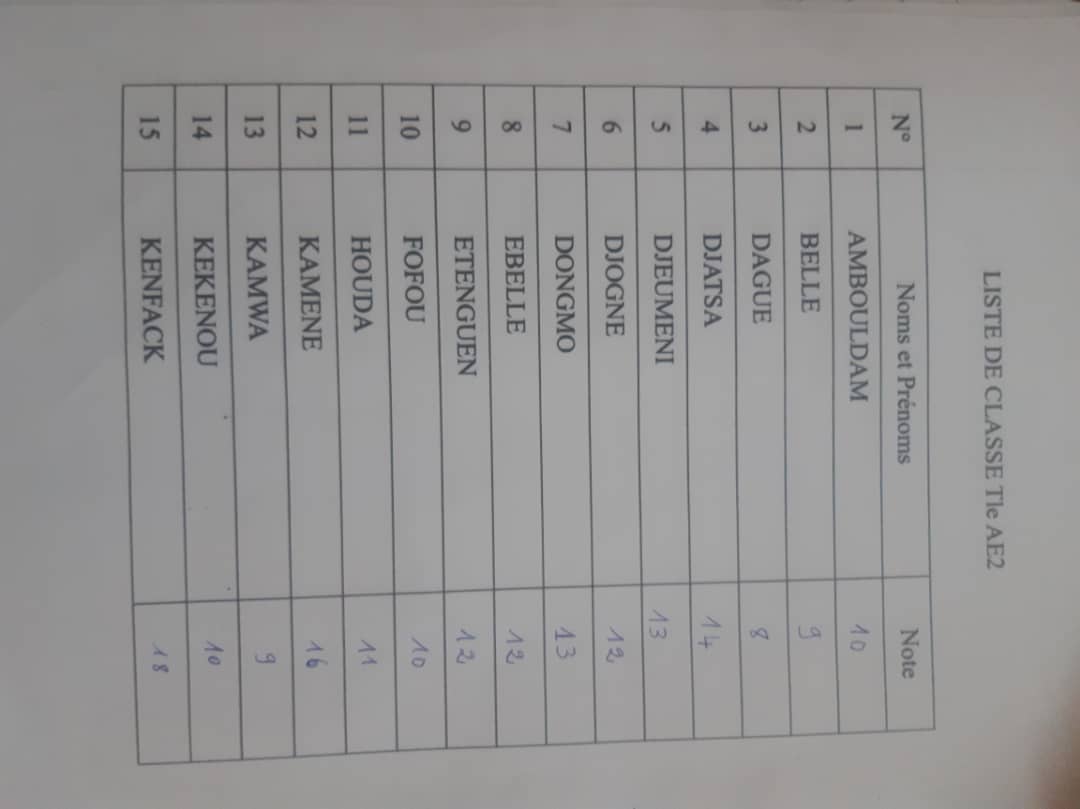 LISTE DE CLASSE Tle AE2
N° Noms et Prénoms Note
1 AMBOULDAM 10
2 BELLE 9
3 DAGUE 8
4 DJATSA 14
5 DJEUMENI 13
6 DJOGNE 12
7 DONGMO 13
8 EBELLE 12
9 ETENGUEN 12
10 FOFOU 10
11 HOUDA 11
12 KAMENE 16
13 KAMWA 9
14 KEKENOU 10
15 KENFACK 18